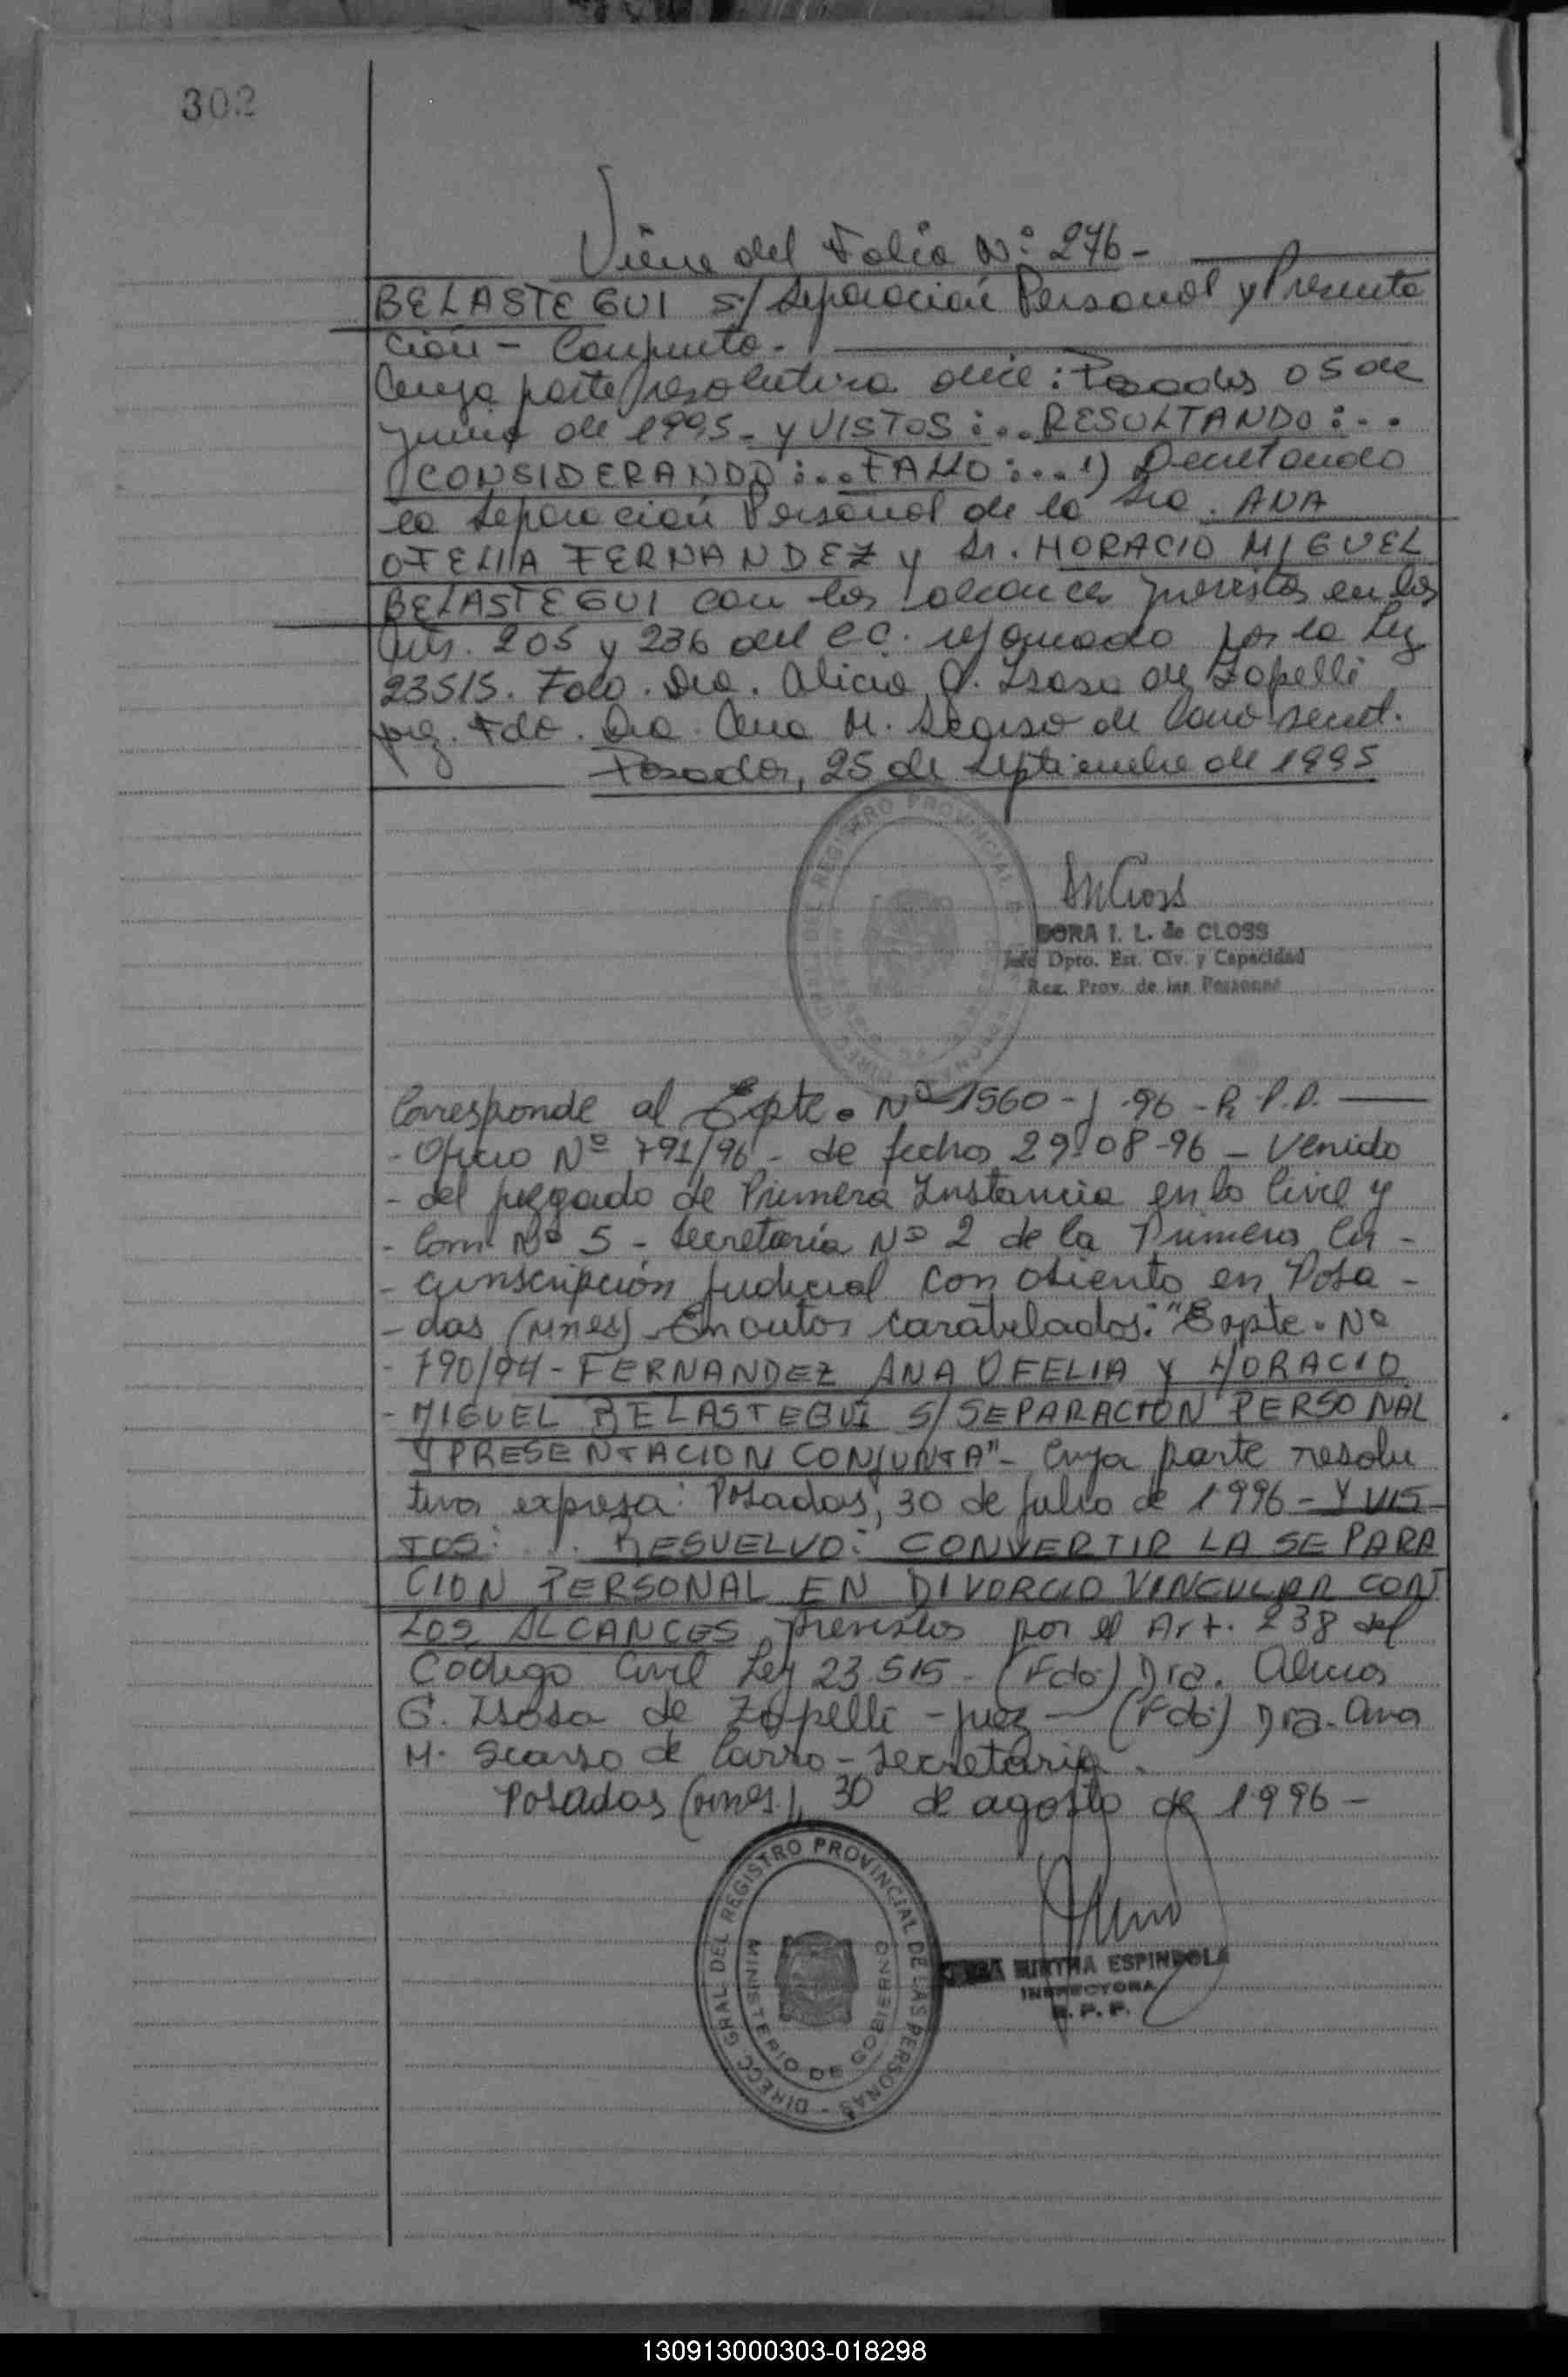 302
Viene del Folio N: 276-
BELASTEGUI s/ Separación Personal y Presenta
ción - Conjunta.
Cuya parte resolutiva dice: Posadas 05 de
junio de 1995- y VISTOS:.. RESULTANDO:..
CONSIDERANDO:.. FALLO:... 1) Decretando
la Separación Personal de la Sra. ANA
OFELIA FERNANDEZ y Sr. HORACIO MIGUEL
BELASTEGUI con los alcances previstos en los
Arts. 205 y 236 del C.C. reformado por la Ley
23515. Fdo. Dra. Alicia G. Isasa de Zapelli
juez. Fdo. Dra. Ana M. Scarso de secret.
Posadas, 25 de Septiembre de 1995
DIRECC. GRAL. DEL REGISTRO PROVINCIAL DE LAS PERSONAS
DORA I. L. de CLOSS
Jefe Dpto. Est. Civ. y Capacidad
Reg. Prov. de las Personas
Corresponde al Expte. Nº 1560-J-96-R.P.P.
- Oficio Nº 791/96 - de fecha 29-08-96 - Venido
- del juzgado de Primera Instancia en lo Civil y
- Com Nº 5 - Secretaría Nº 2 de la Primera Cir -
- cunscripción Judicial con asiento en Posa -
- das (Mnes) - En autos caratulados: "Expte. Nº
- 790/94 - FERNANDEZ ANA OFELIA Y HORACIO
- MIGUEL BELASTEGUI S/ SEPARACION PERSONAL
Y PRESENTACION CONJUNTA" - Cuya parte resolu
tiva expresa: Posadas, 30 de julio de 1996 - Y VIS
TOS: .. RESUELVO: CONVERTIR LA SEPARA
CION PERSONAL EN DIVORCIO VINCULAR CON
LOS ALCANCES previstos por el Art. 238 del
Codigo Civil Ley 23.515 - (Fdo) Dra. Alicia
G. Isasa de Zapelli - juez - (Fdo) Dra. Ana
M. Scarso de - Secretaria.
Posadas (mnes), 30 de agosto de 1996 -
DIRECC. GRAL. DEL REGISTRO PROVINCIAL DE LAS PERSONAS -
MINISTERIO DE GOBIERNO
MIRTHA ESPINDOLA
INSPECTORA
R. P. P.
130913000303-018298